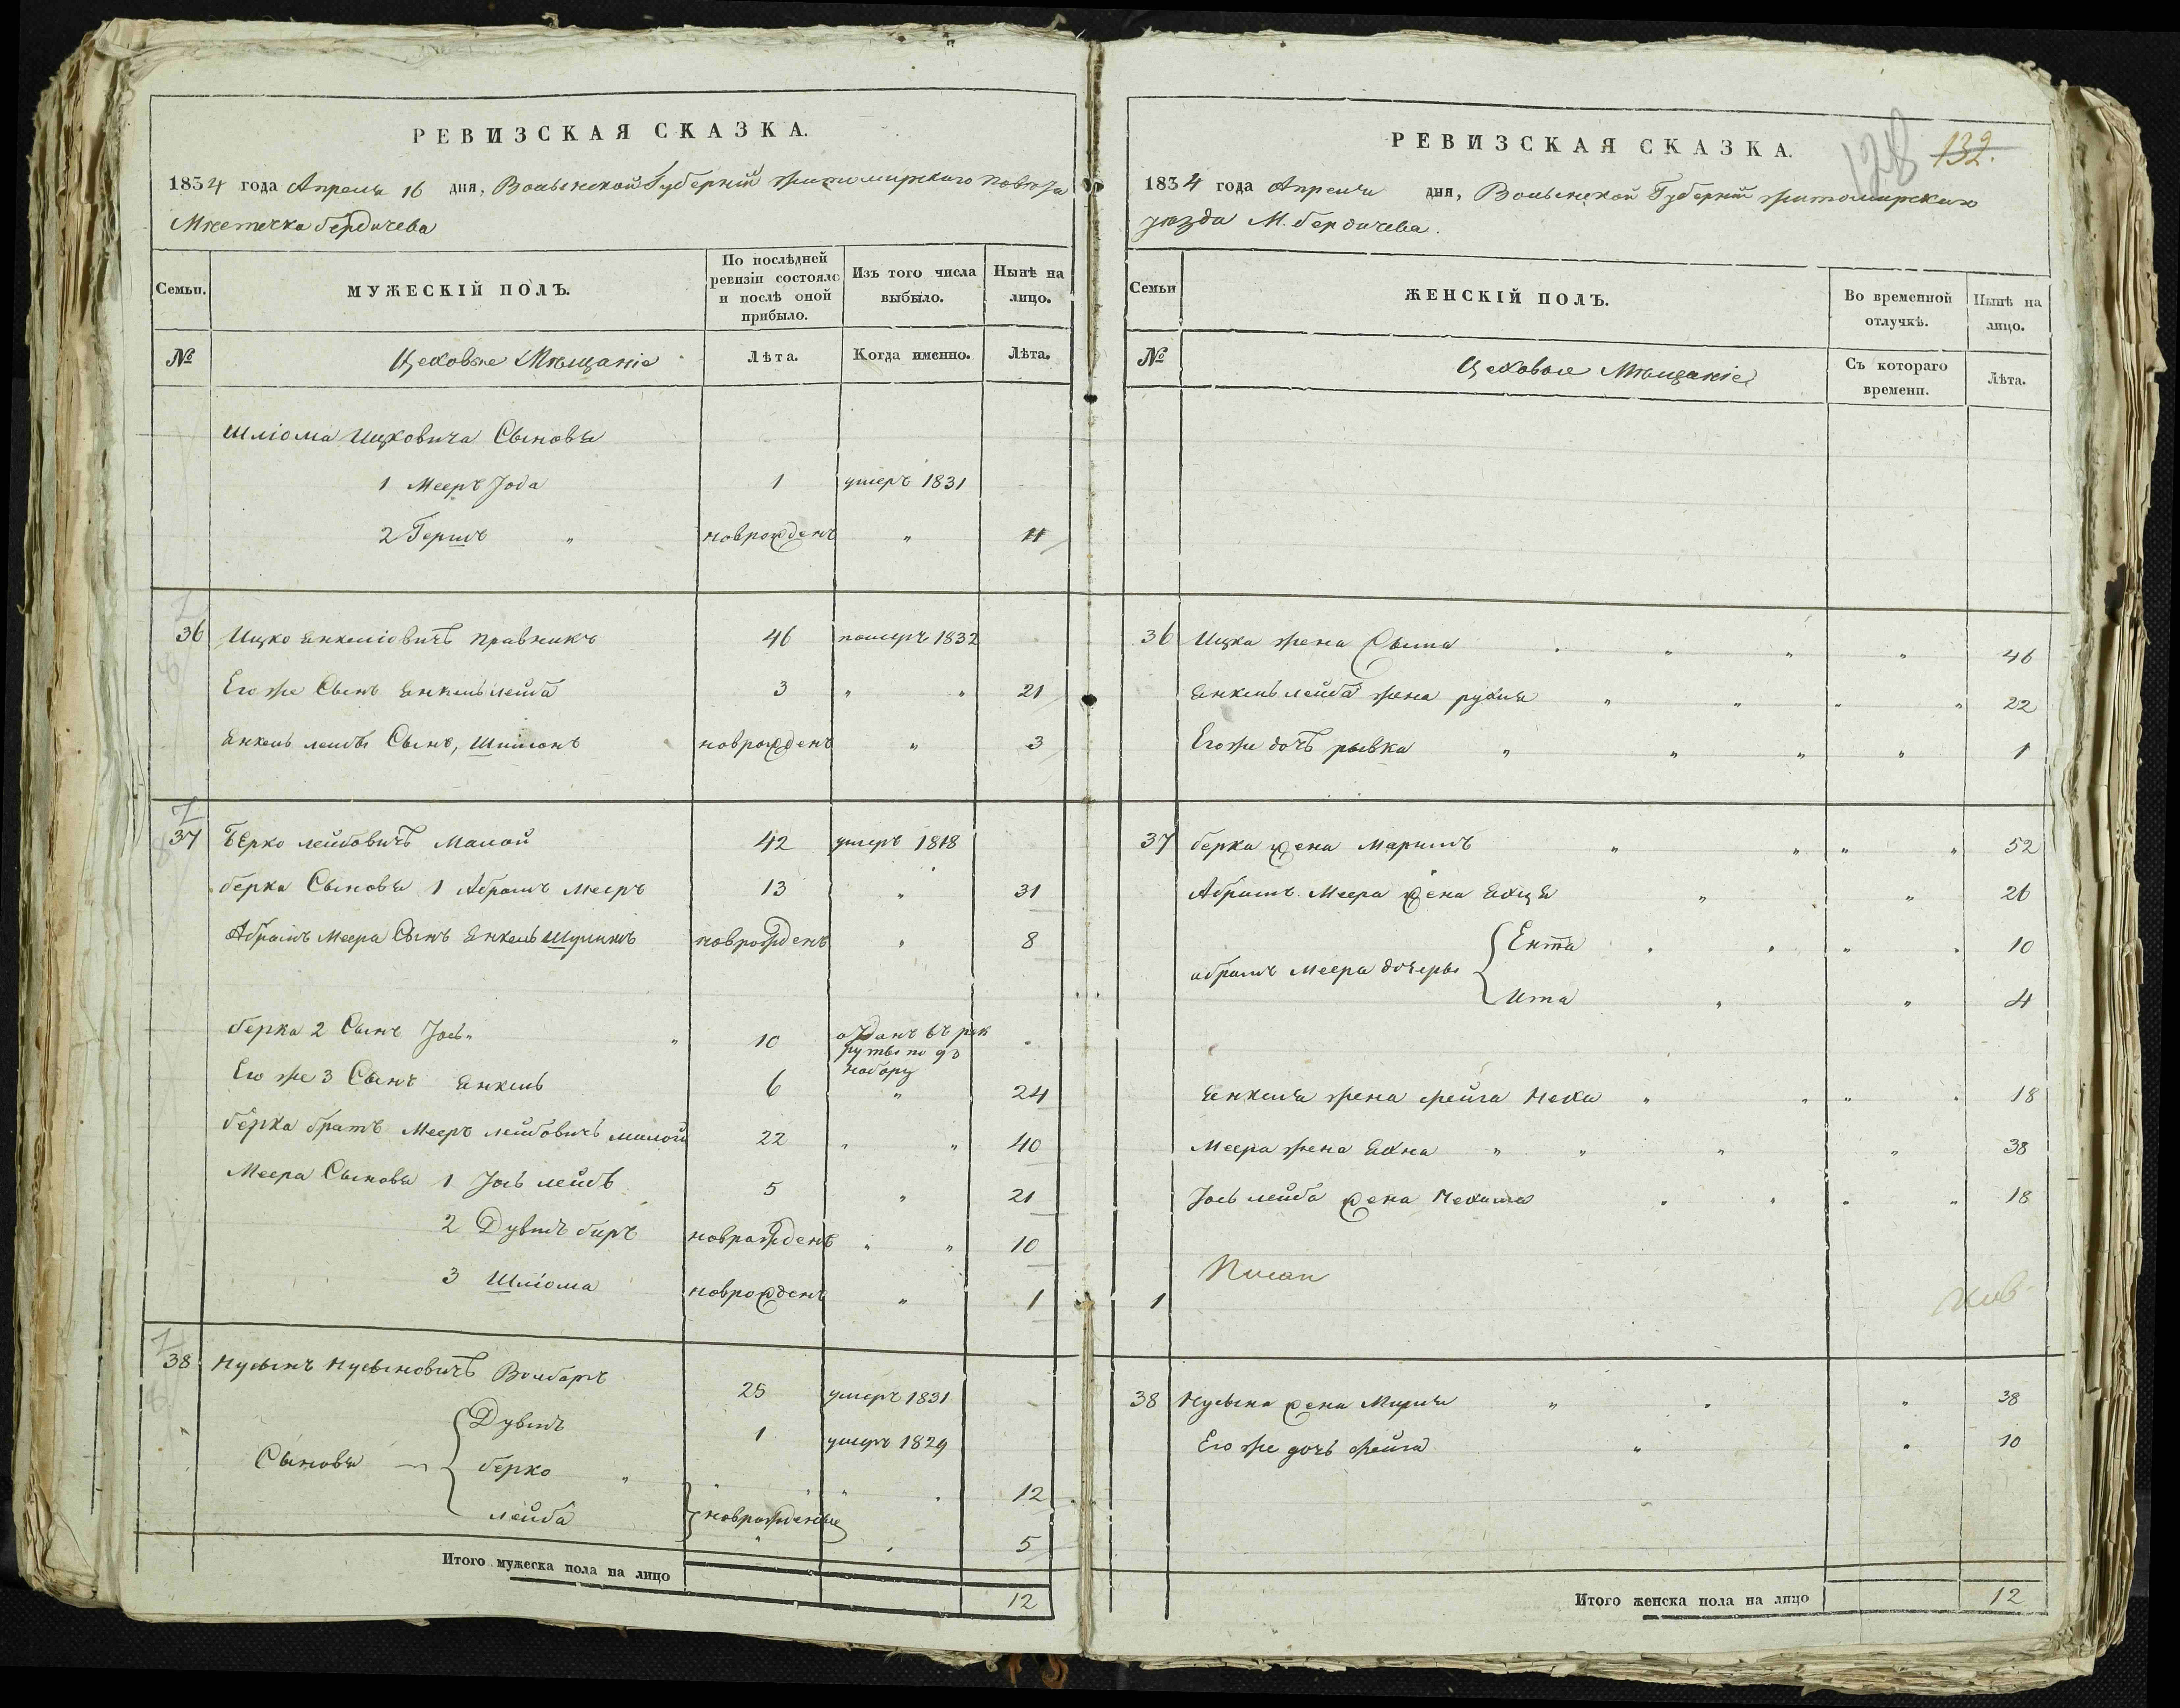 РЕВИЗСКАЯ СКАЗКА.
1834 года Апреля 16 дня, Волынской Губерніи Житомирского Повѣта
Мѣстечка бердичева
Семьи. МУЖЕСКІЙ ПОЛЪ. По послѣдней ревизіи состояло и послѣ оной прибыло. Изъ того числа выбыло. Нынѣ на лицо.
№ Цеховые Мѣщаніе Лѣта. Когда именно. Лѣта.
Шліома Ицковича Сыновя
1 Мееръ Іода 1 умеръ 1831
2 Гершъ " новрожденъ " 11
36 Ицко Янкеліовичъ Правникъ 46 померъ 1832
Его же Сынъ Янкель лейба 3 " " 21
Янкель лейбы Сынъ, Шимонъ новрожденъ " 3
37 Берко лейбовичъ Малой 42 умеръ 1818
берка Сыновя 1 Абрамъ Мееръ 13 " 31
Абрамъ Меера Сынъ Янкель Шулимъ новрожденъ " 8
берка 2 Сынъ Іось " " 10 отданъ въ рек
руты по 93
набору
Его же 3 Сынъ Янкель 6 " 24
берка братъ Мееръ лейбовичъ малой 22 " " 40
Меера Сыновя 1 Іось лейбъ 5 " 21
2 Дувидъ беръ новрожденъ " " 10
3 Шліома новрожденъ " 1
38 Нусынъ Нусыновичъ 25 умеръ 1831
Сыновя Дувидъ 1 умеръ 1829
берко " " " " " 12
лейба новрожденые " 5
Итого мужеска пола на лицо 12
РЕВИЗСКАЯ СКАЗКА.
128 132.
1834 года Апреля дня, Волынской Губерніи Житомирскаго
уезда М. бердичева.
Семьи ЖЕНСКІЙ ПОЛЪ. Во временной отлучкѣ. Нынѣ на лицо.
№ Цеховые Мѣщаніе Съ котораго времени. Лѣта.
36 Ицка жена Сыма " " " " 46
Янкель лейба жена рухля " " " " 22
Его же дочь рывка " " " " 1
37 берка жена Маримъ " " " " 52
Абрамъ Меера жена " " 26
абрамъ Меера дочеры Ента " " " " 10
Ита " " 4
Янкеля жена фейга Неха " " " " 18
Меера жена Яхна " " " " 38
Іось лейба жена Нехама " " " " 18
1
38 Нусына жена Мирля " " " 38
Его же дочь фейга " " 10
Итого женска пола на лицо 12